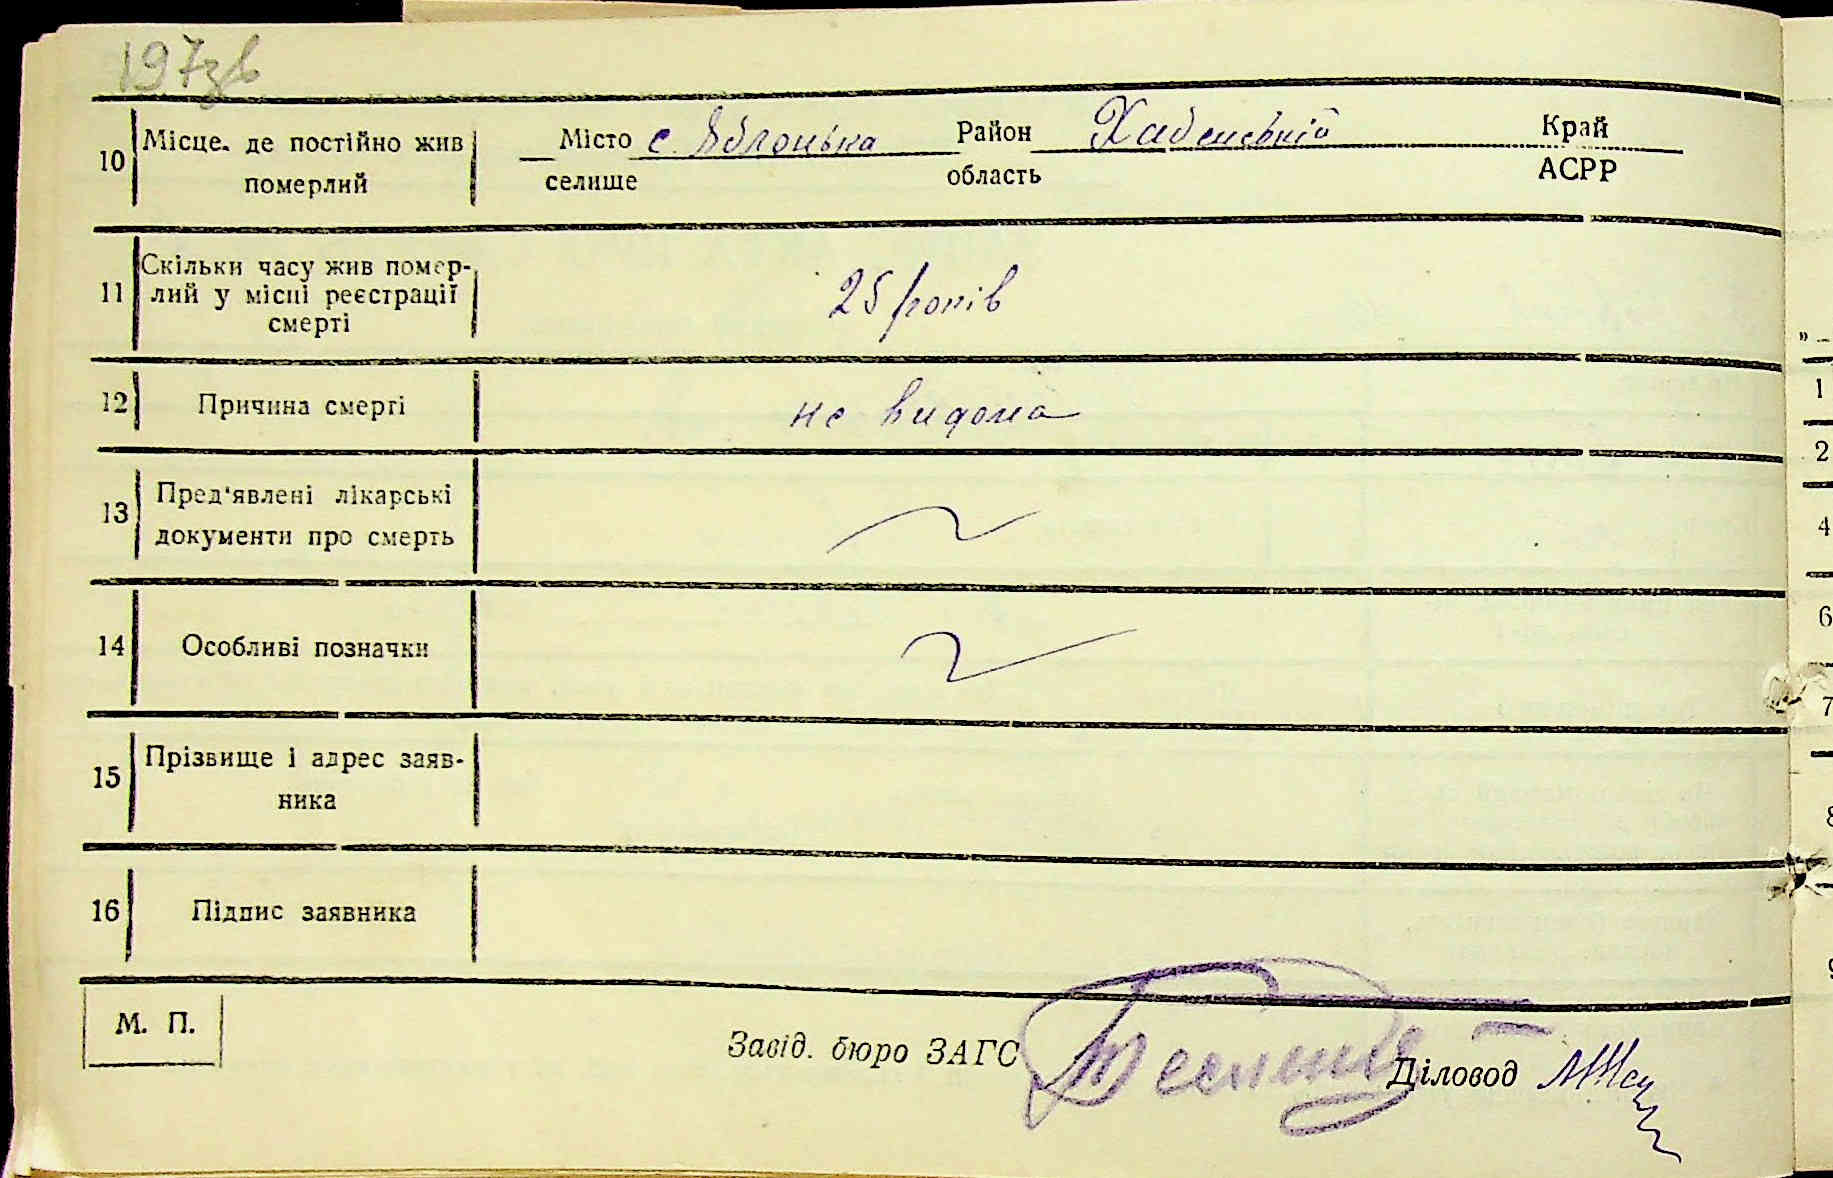 197зв
10 Місце. де постійно жив Місто с. Яблонька Район Хабенський Край
померлий селище область АСРР
11 Скільки часу жив помер-
лий у місці реєстрації 25 років
смерті
12 Причина смерті не видома
13 Пред'явлені лікарські
документи про смерть
14 Особливі позначки
15 Прізвище і адрес заяв-
ника
16 Підпис заявника
М. П.
Завід. бюро ЗАГС Діловод
"
1
2
4
6
7
8
9